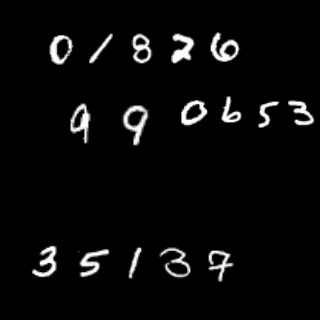 01826
990653
35137